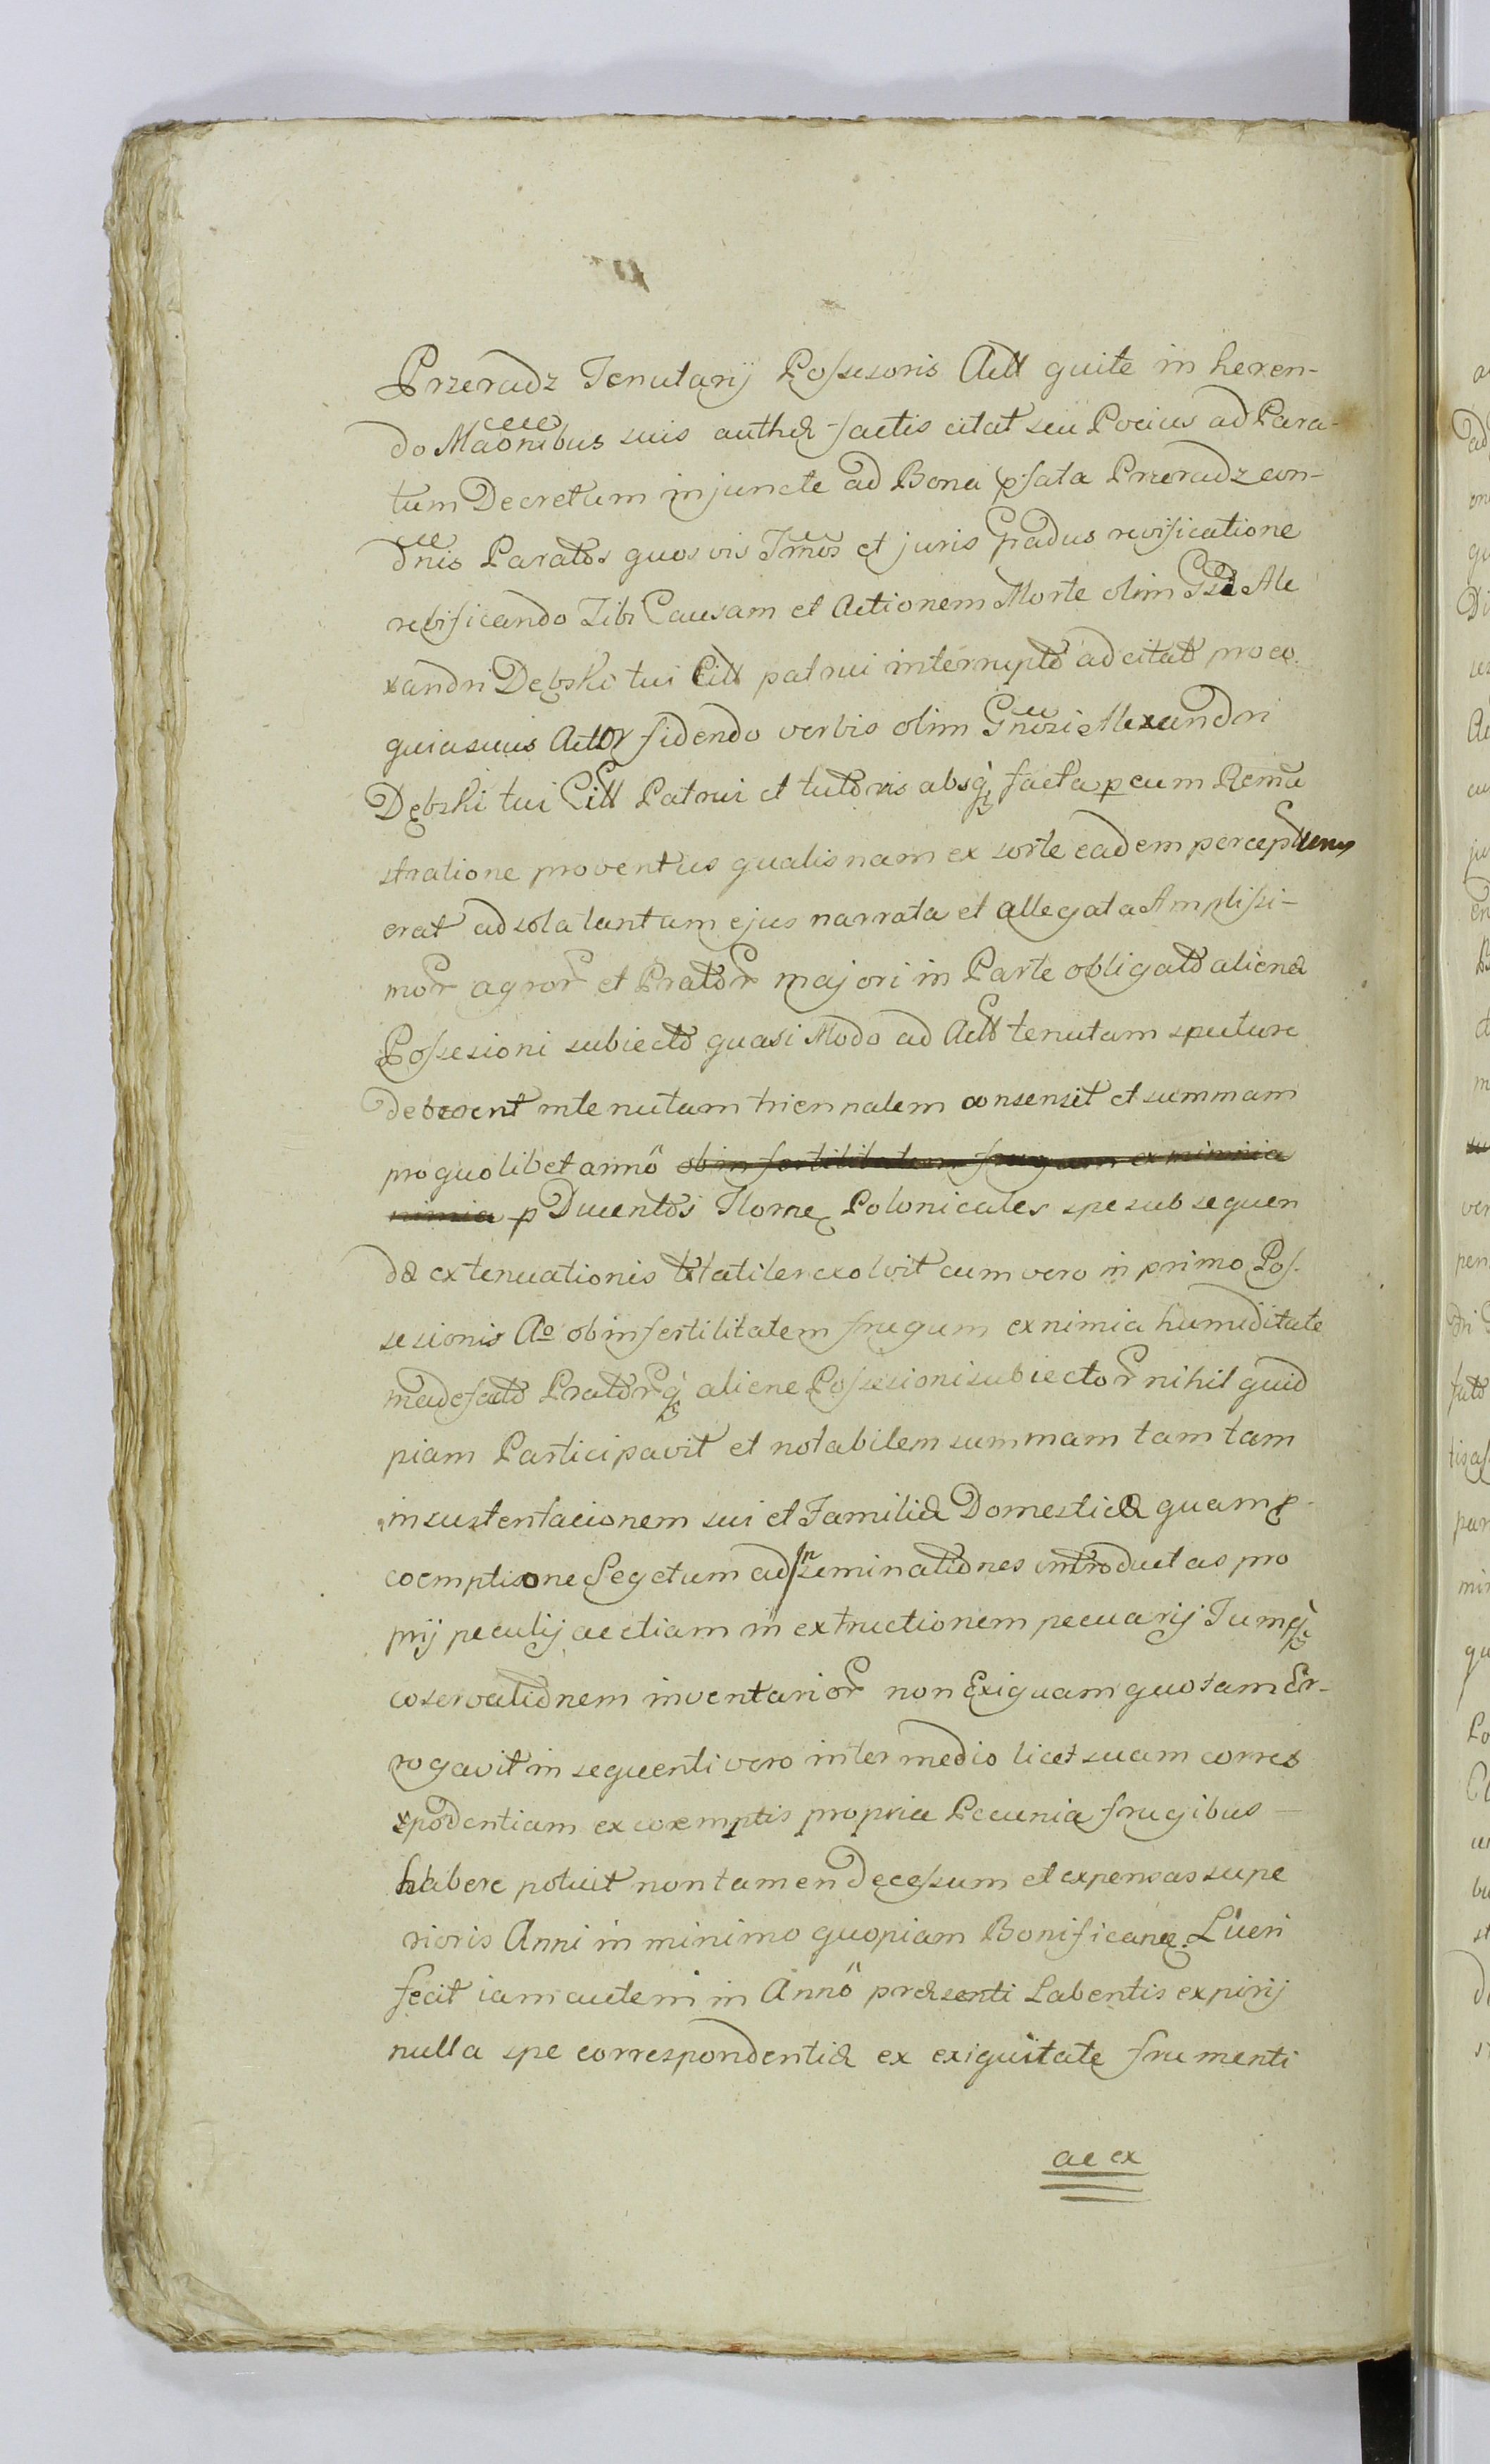 Przeradz Tenutarij Possesoris Act quite in heren-
do Maonibus suis authæ factis citat seu Pocius ad Para-
tum Decretum injuncte ad Bona pfata Przeradz con-
dnis Paratos quosvis Tmos et juris Gradus revificatione
revificando Tibi Causam et Actionem Morte olim Gsi Ale
xandri Dębski tui Citt patrui interrupto ad citat pro eo
quia suus Actor fidendo verbis olim Gnosi Alexandri
Dębski tui Citt Patrui et tutoris absq facta p eum Remu
stratione proventus qualisnam ex sorte eadem percep
erat ad sola tantum ejus narrata et allegata Amplissi-
mor agror et Prator majori in Parte obligato alienæ
Possesioni subiecto quasi Modo ad Act tenutam sputure
deberent in tenutam triennalem consensit et summam
pro quolibet anno ob infertilitatem frugum ex nimia
nimia p Ducentos Flore Polonicales spe subsequen
dæ extenuationis tlatiter exolvit cum vero in primo Pos-
sesionis Ao ob infertilitatem frugum ex nimia humiditate
madefacto Pratorq aliene Possesioni subiector nihil quid
piam Participavit et notabilem summam tam tam
in sustentacionem sui et Familiæ Domesticæ quam p
coemptione Segetum ad inseminationes introductas pro
prij peculij ac etiam in extructionem pecuarij Tumq
coservationem inventarior non Exiguam quotam Er-
rogavit in sequenti vero intermedio licet suam corres
spodentiam ex coemptis propria Pecunia frugibus -
habere potuit non tamen decessum et expensas supe
rioris Anni in minimo quopiam Bonificane Lucri
fecit iam autem in Anno præsenti Labentis expirij
nulla spe correspondentiæ ex exiguitate frumenti
ac ex